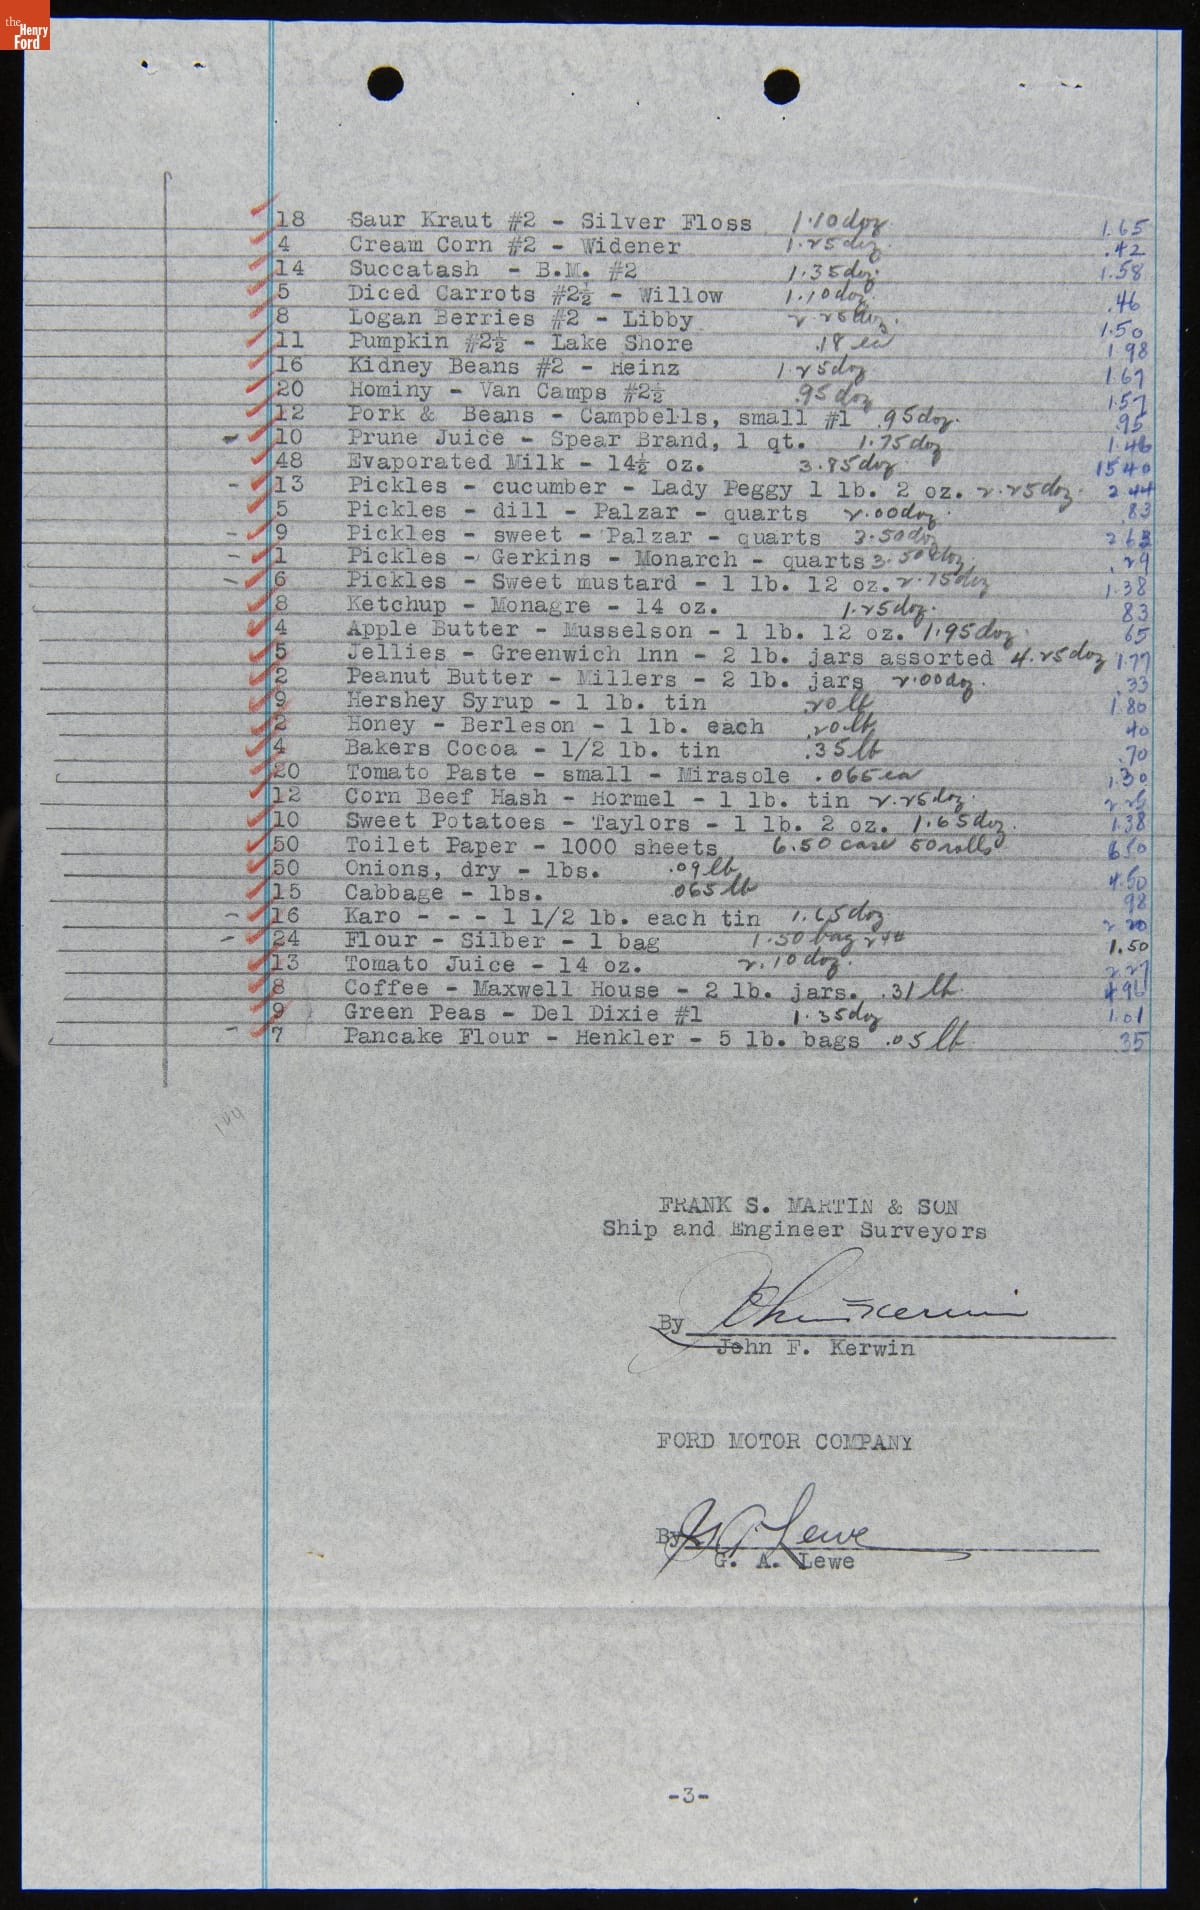 the
Henry
Ford
18 Saur Kraut #2 - Silver Floss 1.10 doz 1.65
4 Cream Corn #2 - Widener 1.25 doz. .42
14 Succatash - B.M. #2 1.35 doz. 1.58
5 Diced Carrots #2½ - Willow 1.10 doz. .46
8 Logan Berries #2 - Libby 2.25 doz. 1.50
11 Pumpkin #2½ - Lake Shore .18 ea 1.98
16 Kidney Beans #2 - Heinz 1.25 doz 1.67
20 Hominy - Van Camps #2½ .95 doz 1.57
12 Pork & Beans - Campbells, small #1 .95 doz. .95
10 Prune Juice - Spear Brand, 1 qt. 1.75 doz 1.46
48 Evaporated Milk - 14½ oz. 3.85 doz 15 40
13 Pickles - cucumber - Lady Peggy 1 lb. 2 oz. 2.25 doz. 2 44
5 Pickles - dill - Palzar - quarts 2.00 doz. .83
9 Pickles - sweet - Palzar - quarts 3.50 doz 2 63
1 Pickles - Gerkins - Monarch - quarts 3.50 doz .29
6 Pickles - Sweet mustard - 1 lb. 12 oz. 2.75 doz 1.38
8 Ketchup - Monagre - 14 oz. 1.25 doz. 83
4 Apple Butter - Musselson - 1 lb. 12 oz. 1.95 doz. 65
5 Jellies - Greenwich Inn - 2 lb. jars assorted 4.25 doz 1.77
2 Peanut Butter - Millers - 2 lb. jars 2.00 doz. .33
9 Hershey Syrup - 1 lb. tin .20 lb 1.80
2 Honey - Berleson - 1 lb. each .20 lb 40
4 Bakers Cocoa - 1/2 lb. tin .35 lb .70
20 Tomato Paste - small - Mirasole .065 ea 1.30
12 Corn Beef Hash - Hormel - 1 lb. tin 2.25 doz. 2 25
10 Sweet Potatoes - Taylors - 1 lb. 2 oz. 1.65 doz. 1.38
50 Toilet Paper - 1000 sheets 6.50 case 50 rolls 6 50
50 Onions, dry - lbs. .09 lb 4.50
15 Cabbage - lbs. .065 lb 98
16 Karo - - - 1 1/2 lb. each tin 1.65 doz. 2 20
24 Flour - Silber - 1 bag 1.50 bag 24# 1.50
13 Tomato Juice - 14 oz. 2.10 doz. 2.27
8 Coffee - Maxwell House - 2 lb. jars. .31 lb. 4 96
9 Green Peas - Del Dixie #1 1.35 doz 1.01
7 Pancake Flour - Henkler - 5 lb. bags .05 lb .35
144
FRANK S. MARTIN & SON
Ship and Engineer Surveyors
By John F Kerwin
John F. Kerwin
FORD MOTOR COMPANY
By G A Lewe
G. A. Lewe
-3-